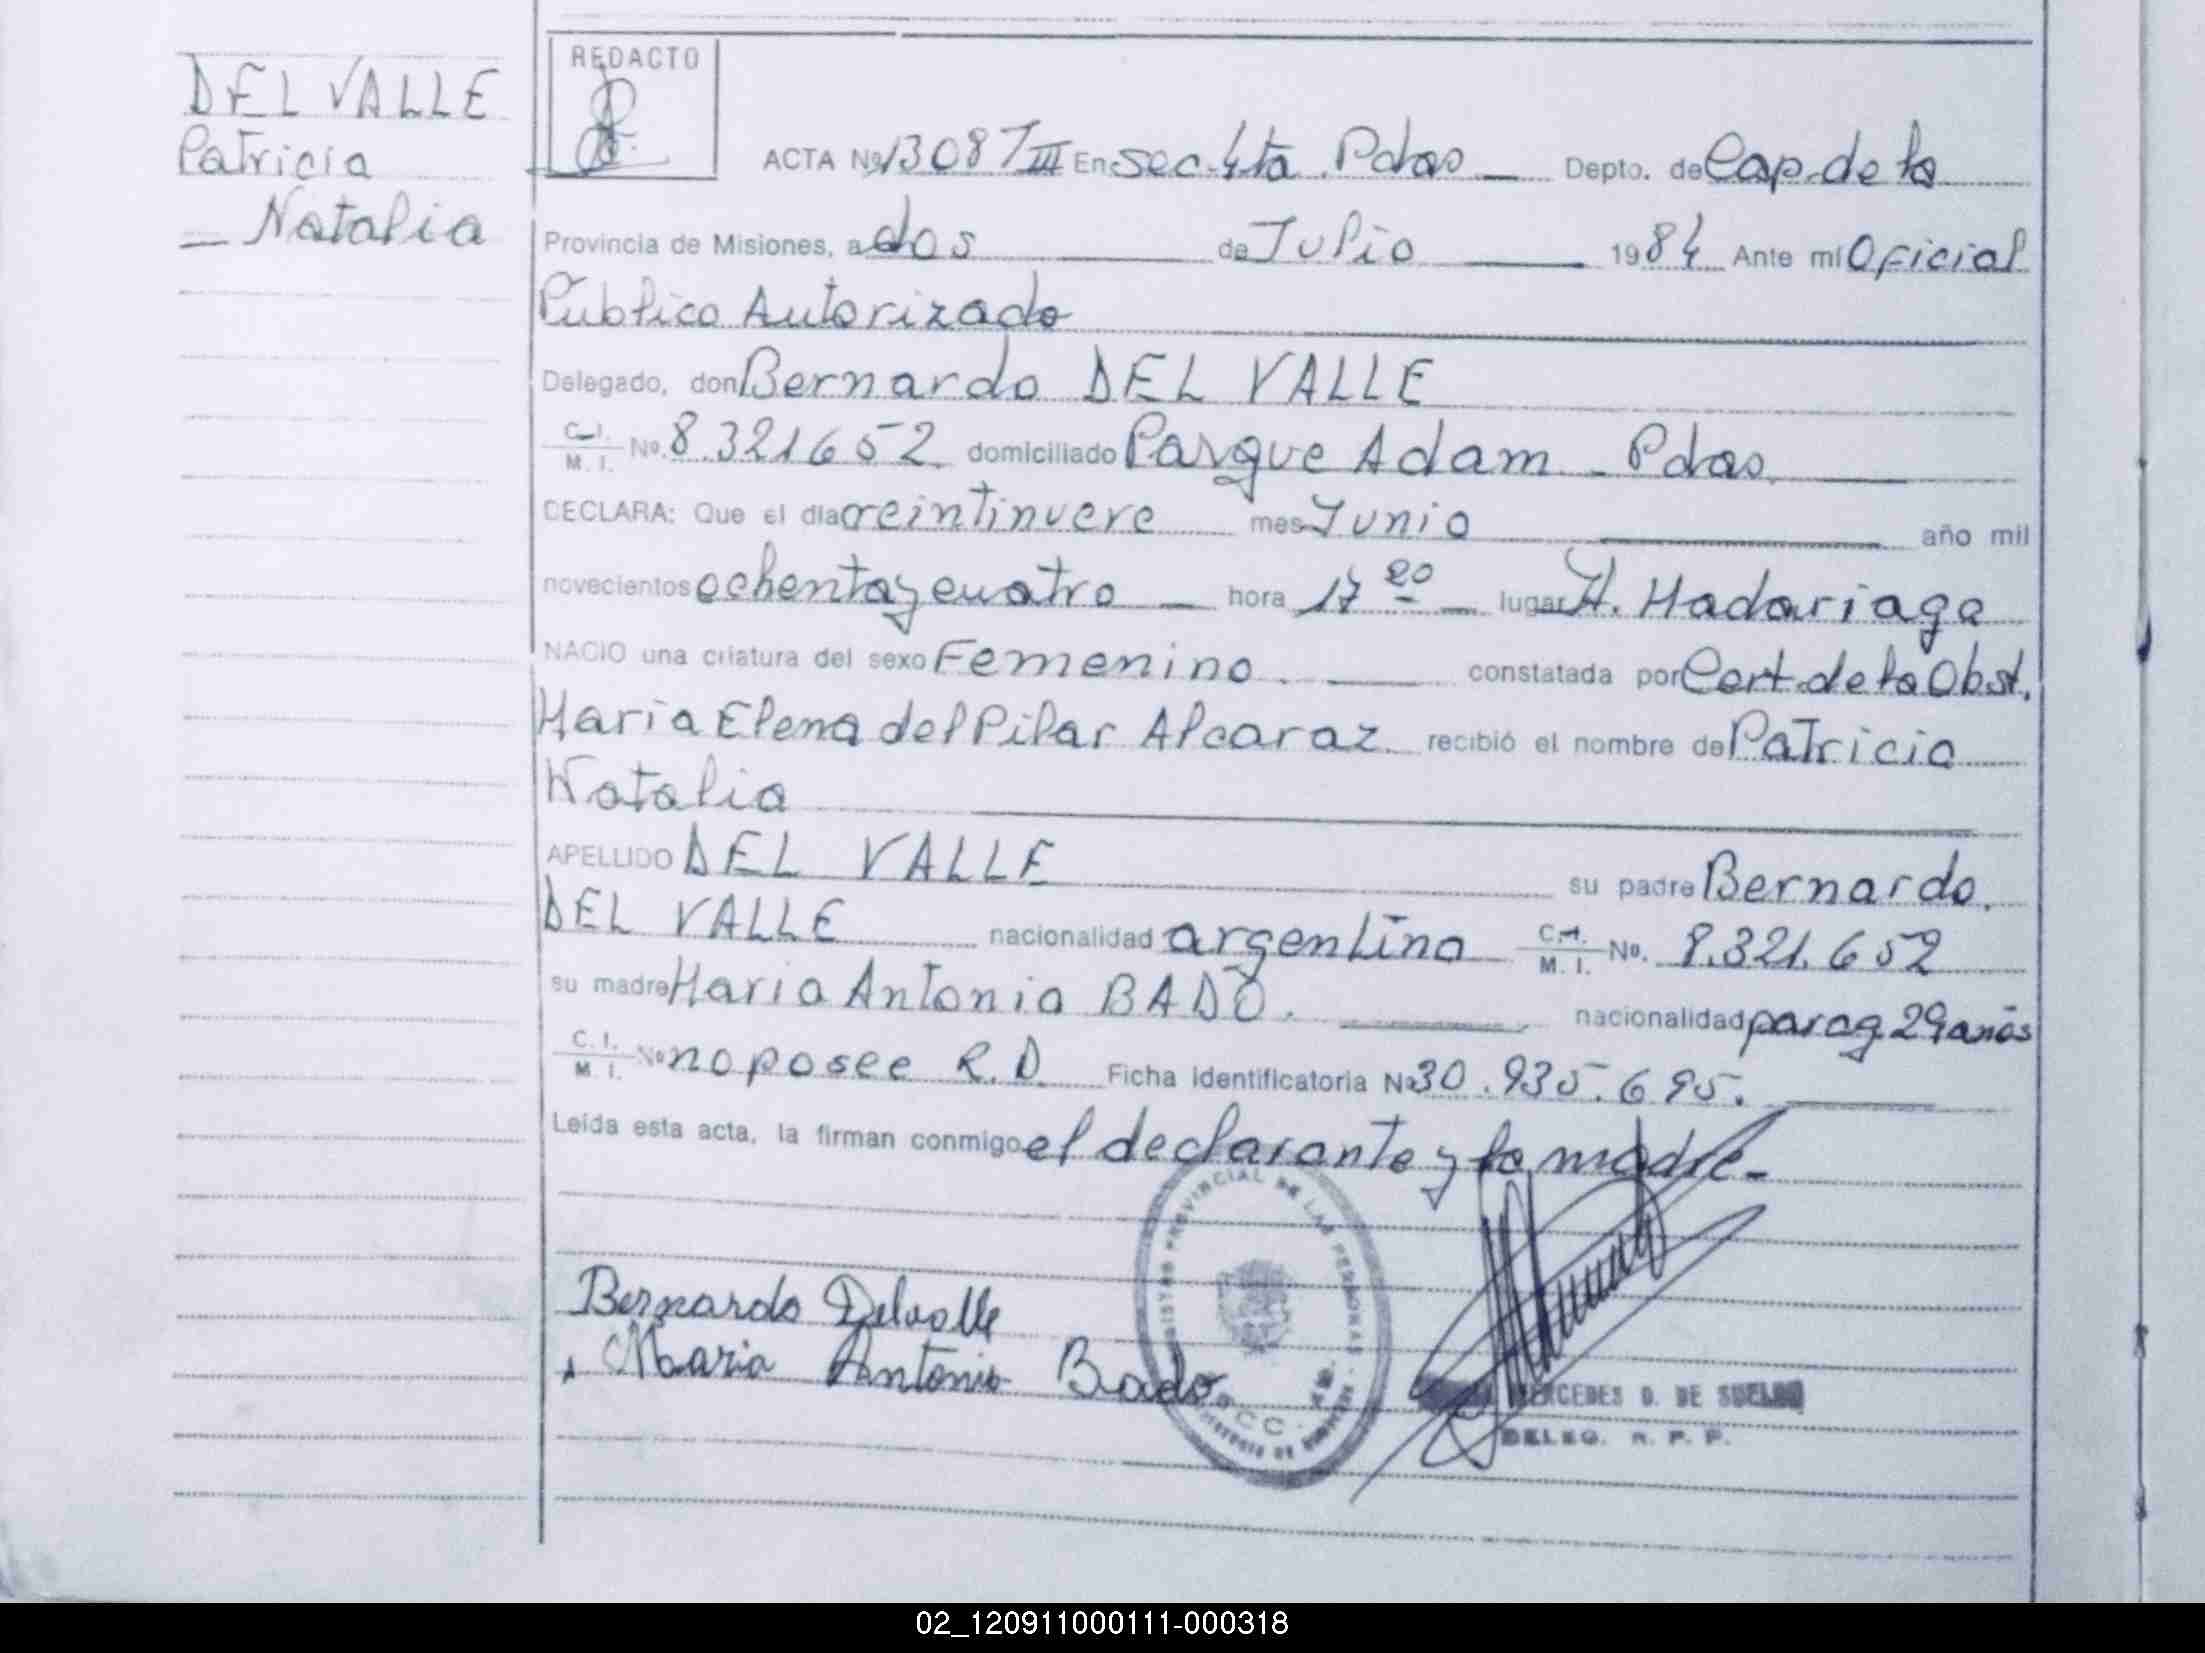 DEL VALLE
Patricia
_ Natalia
REDACTO
ACTA Nº 1308 T III En sec. 4ta Pdas _ Depto. de Cap. de la
Provincia de Misiones, a dos de Julio 1984 Ante mí Oficial
Público Autorizado
Delegado, don Bernardo DEL VALLE
C.I. M.I. No. 8.321652 domiciliado Parque Adam - Pdas.
DECLARA: Que el día veintinueve mes Junio año mil
novecientos ochenta y cuatro _ hora 17 20 lugar H. Madariaga
NACIO una criatura del sexo Femenino. constatada por Cert. de la Obst.
Maria Elena del Pilar Alcaraz. recibió el nombre de Patricia
Natalia
APELLIDO DEL VALLE su padre Bernardo.
DEL VALLE nacionalidad argentina C.I. M.I. No. 8.321.652
su madre Maria Antonia BADO. nacionalidad parag. 29 años
C.I. M.I. No no posee R.D. Ficha identificatoria No 30.935.695.
Leída esta acta, la firman conmigo el declarante y la madre-
Bernardo Delvalle
Maria Antonia Bado
PROVINCIAL DE LAS PERSONAS
MERCEDES D. DE SUELDO
DELEG. R. P. P.
02_120911000111-000318